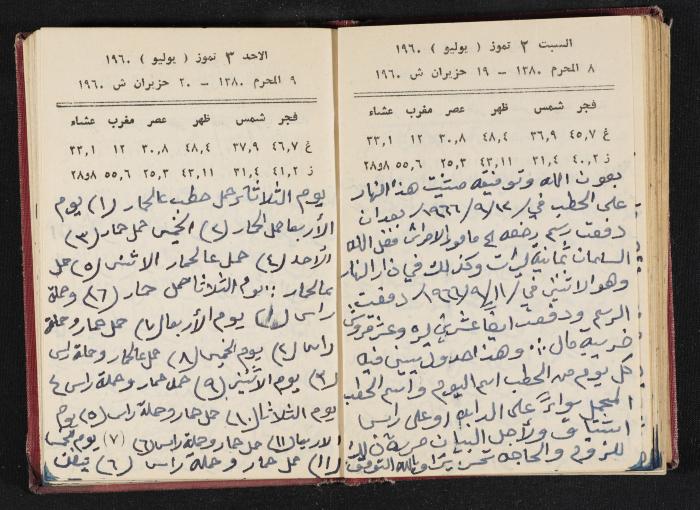 السبت ٢ تموز ( يوليو ) ١٩٦٠
٨ المحرم ١٣٨٠ – ١٩ حزيران ش ١٩٦٠
فجر شمس ظهر عصر مغرب عشاء
غ ٤٥,٧ ٣٦,٩ ٤٨,٤ ٣٠,٨ ١٢ ٣٣,١
ز ٤٠,٢ ٣١,٤ ٤٣,١١ ٢٥,٣ ٥٥,٦ ٢٨و٨
بعون الله وتوفيقه هذا النهار
على الحطب في ١٢/٩/١٩٦٦ بعد ان
دفعت رسم رخصه مامور الاحراش فضل الله
السلمان ثمانية ليرات وكذلك في نهار
وهو الاثنين في ١٩٦٦/٩ دفعت
الرسم ودفعت ايضا عشرين ليره وعشر قروش
ضريبة مال وهذا جدول يبين فيه
كل يوم من الحطب اسم اليوم واسم الحطب
سواء على الدابه او على راس
ولاجل البيان
للزوم والحاجه وبالله التوفيق
الاحد ٣ تموز ( يوليو ) ١٩٦٠
٩ المحرم ١٣٨٠ – ٢٠ حزيران ش ١٩٦٠
فجر شمس ظهر عصر مغرب عشاء
غ ٤٦,٧ ٣٧,٩ ٤٨,٤ ٣٠,٨ ١٢ ٣٣,١
ز ٤١,٢ ٣١,٤ ٤٣,١١ ٢٥,٣ ٥٥,٦ ٢٨و٨
يوم الثلاثاء حمل حطب عالحمار (١) يوم
الأربعا حمل الحمار (٢) الخميس حمل حمار (٣)
الأحد (٤) حمل عالحمار الاثنين (٥) حمل
عالحمار يوم الثلاثا حمل حمار (٦) وحملة
راس (١) يوم الأربعا (٧) حمل حمار وحملة
راس (٢) يوم الخميس (٨) حمل عالحمار وحملة راس
(٣) يوم الاثنين (٩) حمل حمار وحملة راس ٤
يوم الثلاثا (١٠) حمل حمار وحملة راس (٥) يوم
الاربعا (١١) حمل حمار وحملة راس (٦) (٧) يوم
(١١) حمل حمار وحملة راس (٦)